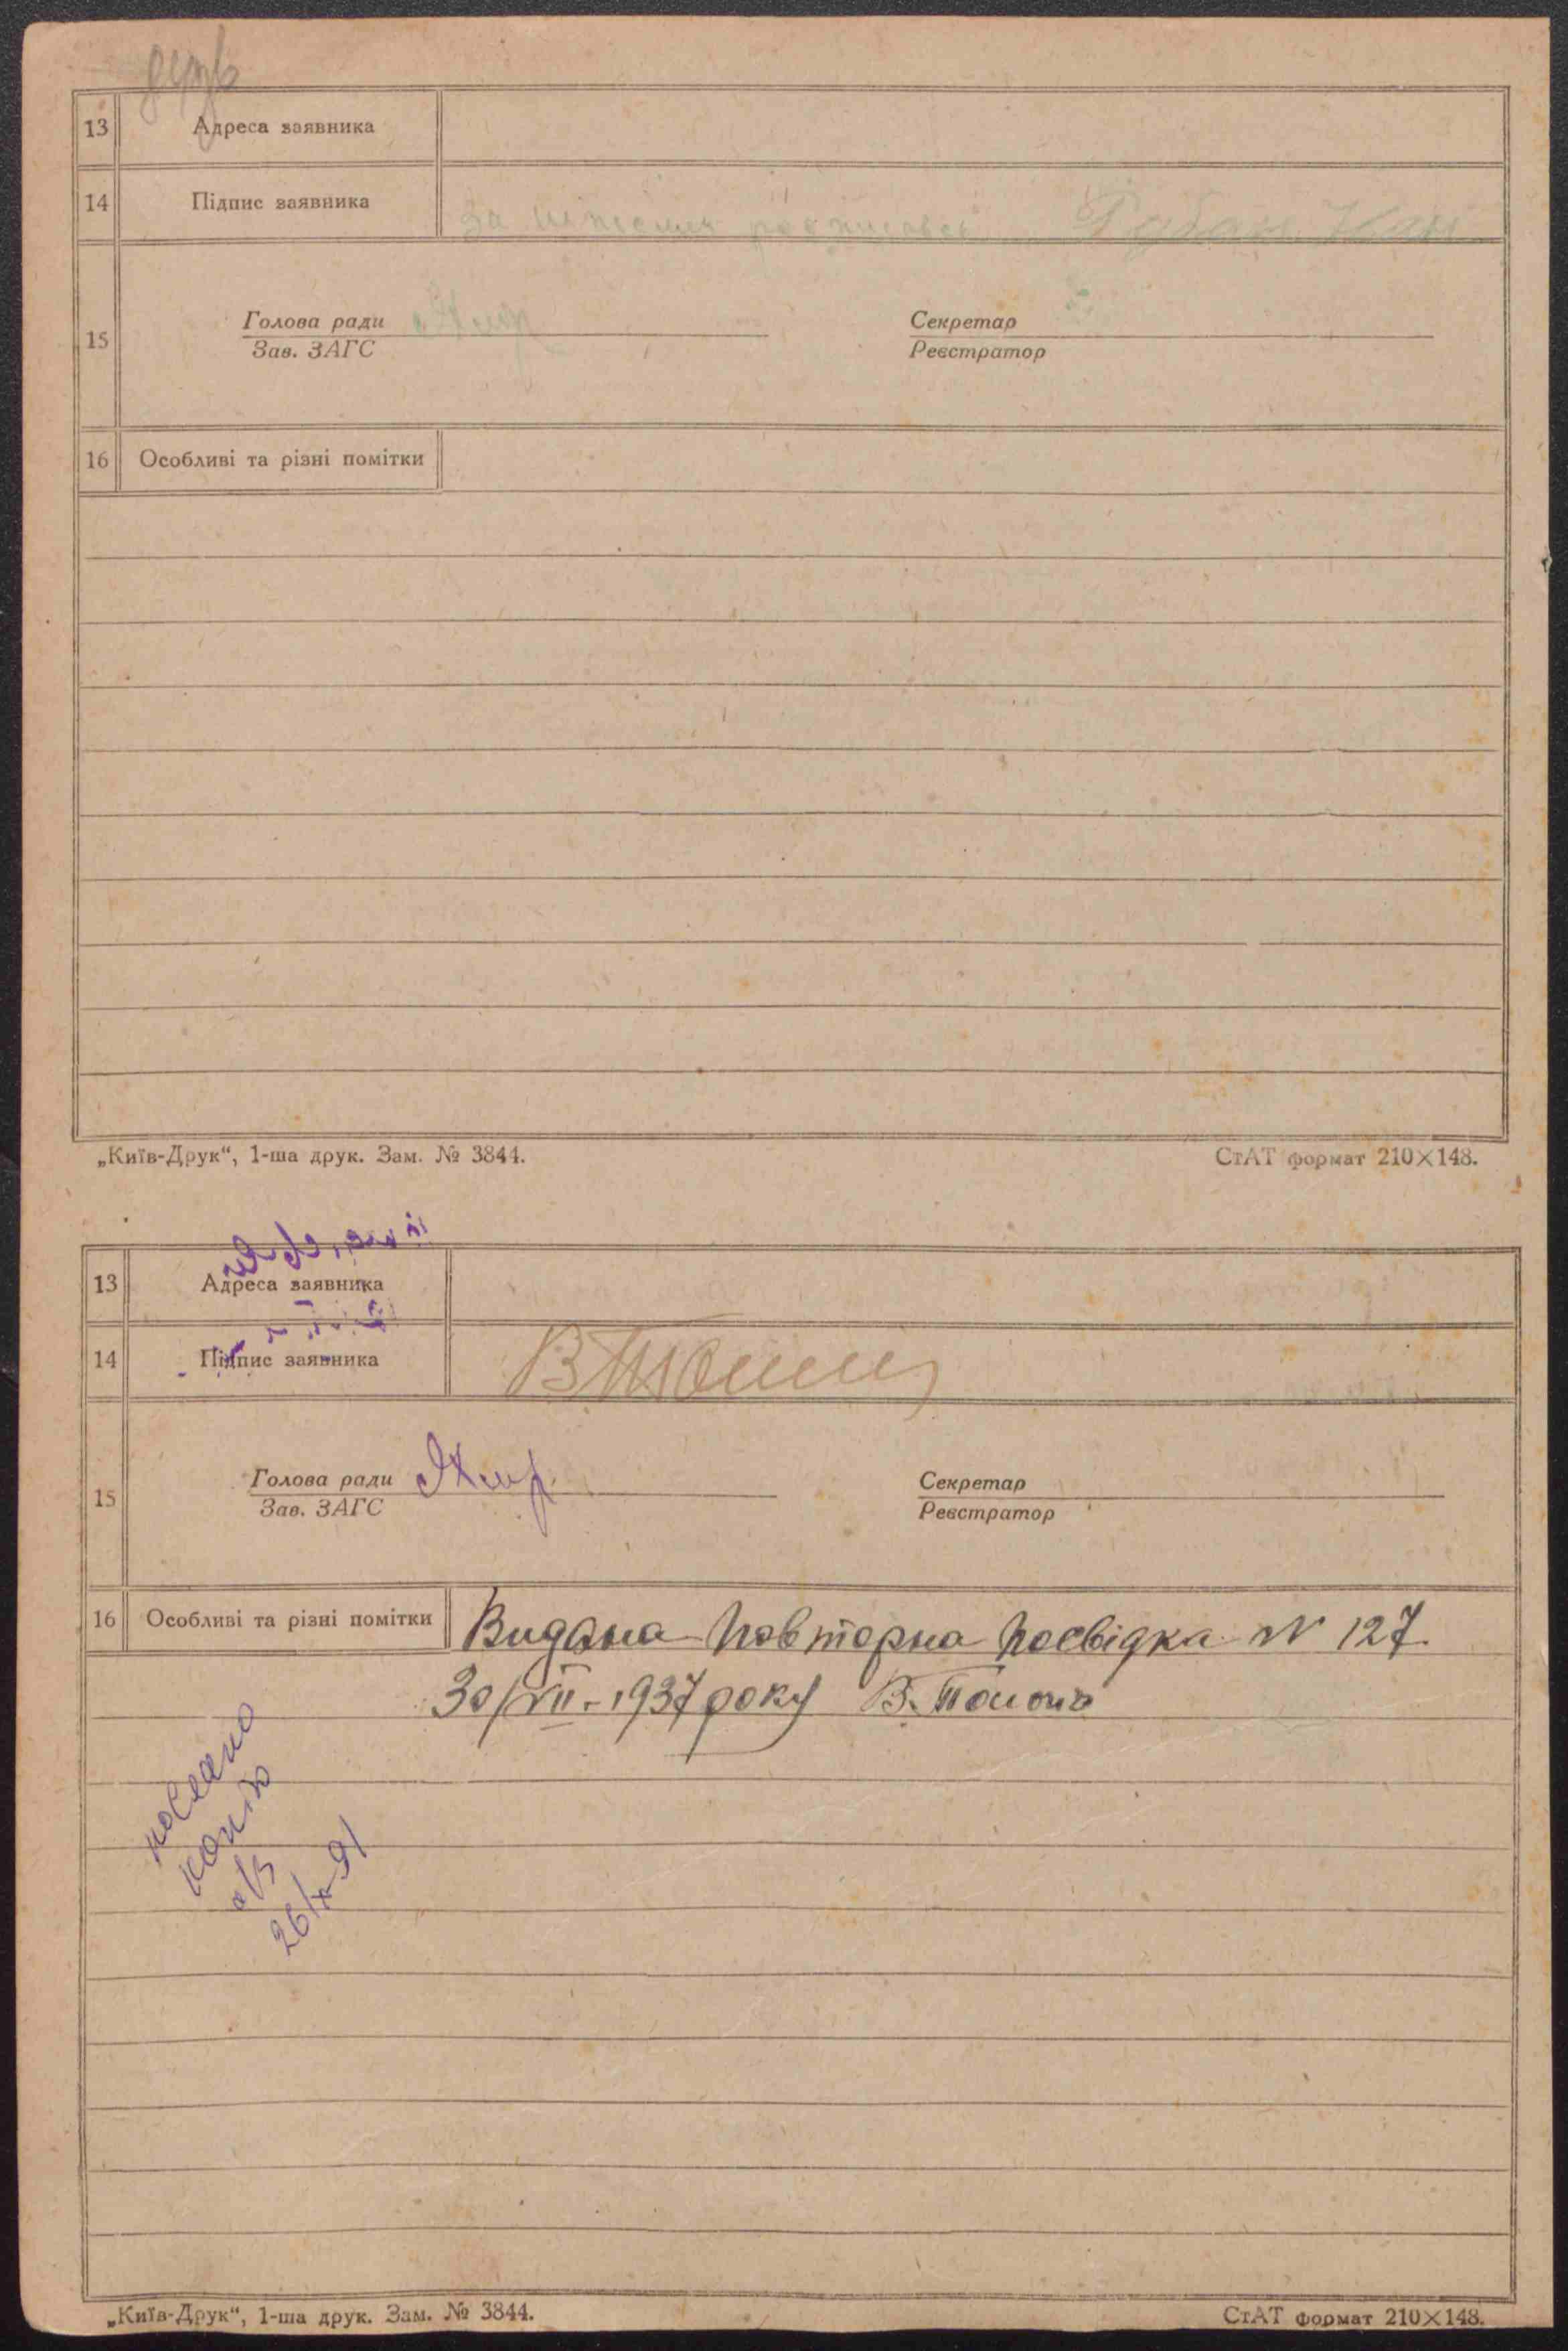 13 Адреса заявника
14 Підпис заявника за
15 Голова ради Секретар
Зав. ЗАГС Реєстратор
16 Особливі та різні помітки
„Київ-Друк“, 1-ша друк. Зам. № 3844. СтАТ формат 210×148.
13 Адреса заявника
14 Підпис заявника
15 Голова ради Секретар
Зав. ЗАГС Реєстратор
16 Особливі та різні помітки Видана повторна посвідка N 127.
30/VII-1937 року В.
послано
копію
26/X-91
„Київ-Друк“, 1-ша друк. Зам. № 3844. СтАТ формат 210×148.